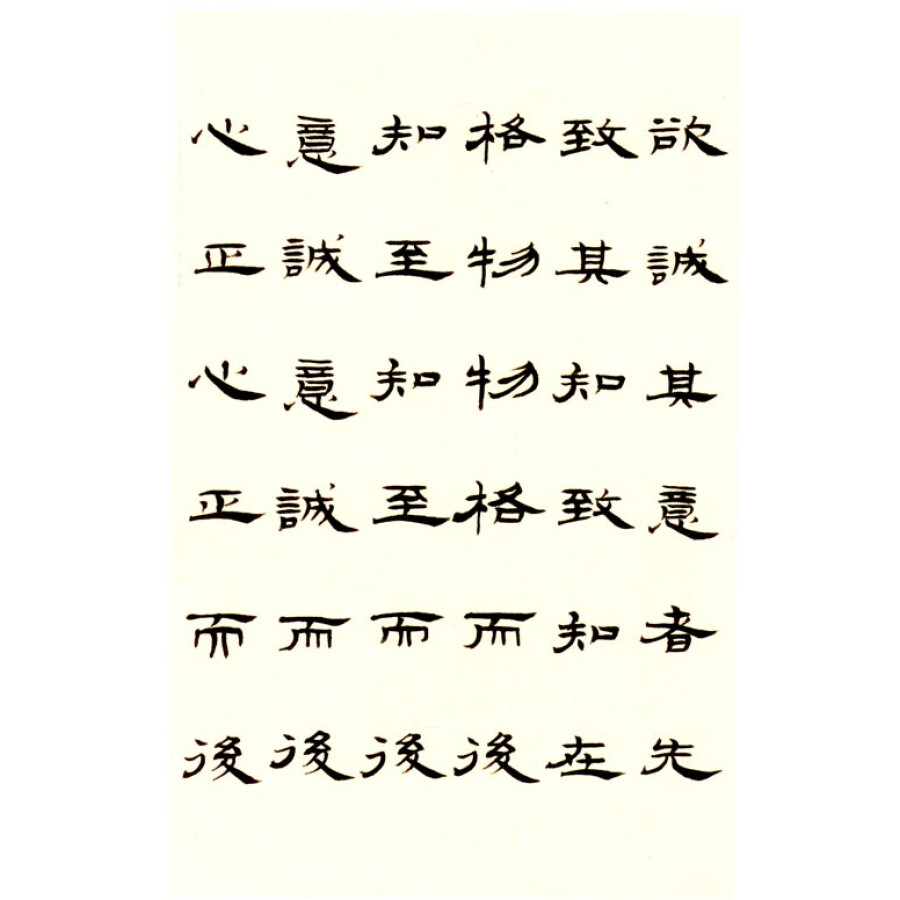 欲誠其意者先
致其知致知在
格物物格而後
知至知至而後
意誠意誠而後
心正心正而後